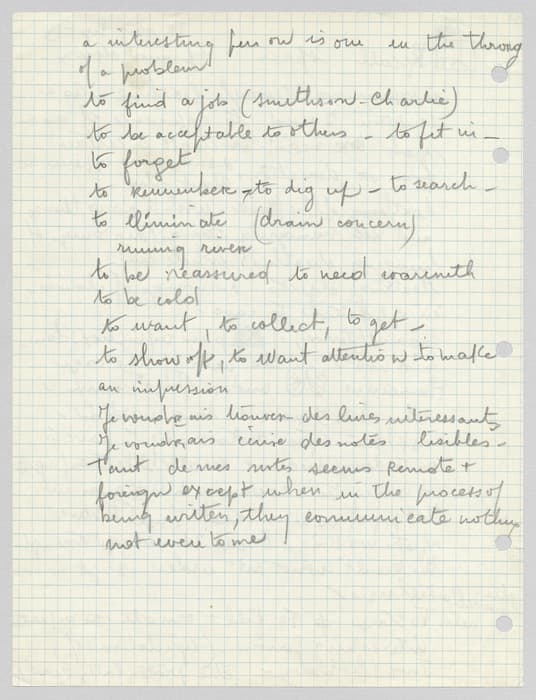 a interesting person is one in the throng
of a problem
to find a job (Smithson-Charlie)
to be acceptable to others - to fit in -
to forget
to remember, - to dig up - to search -
to eliminate (drain concern)
runnig river
to be reassured to need warmth
to be cold
to want, to collect, to get -
to show off, to want attention to make
an impression
Je voudrais trouver des livres interessants
Je voudrais écrire des notes lisibles -
Tant de mes notes seems remote +
foreign except when in the process of
being writen, they communicate nothing
not even to me